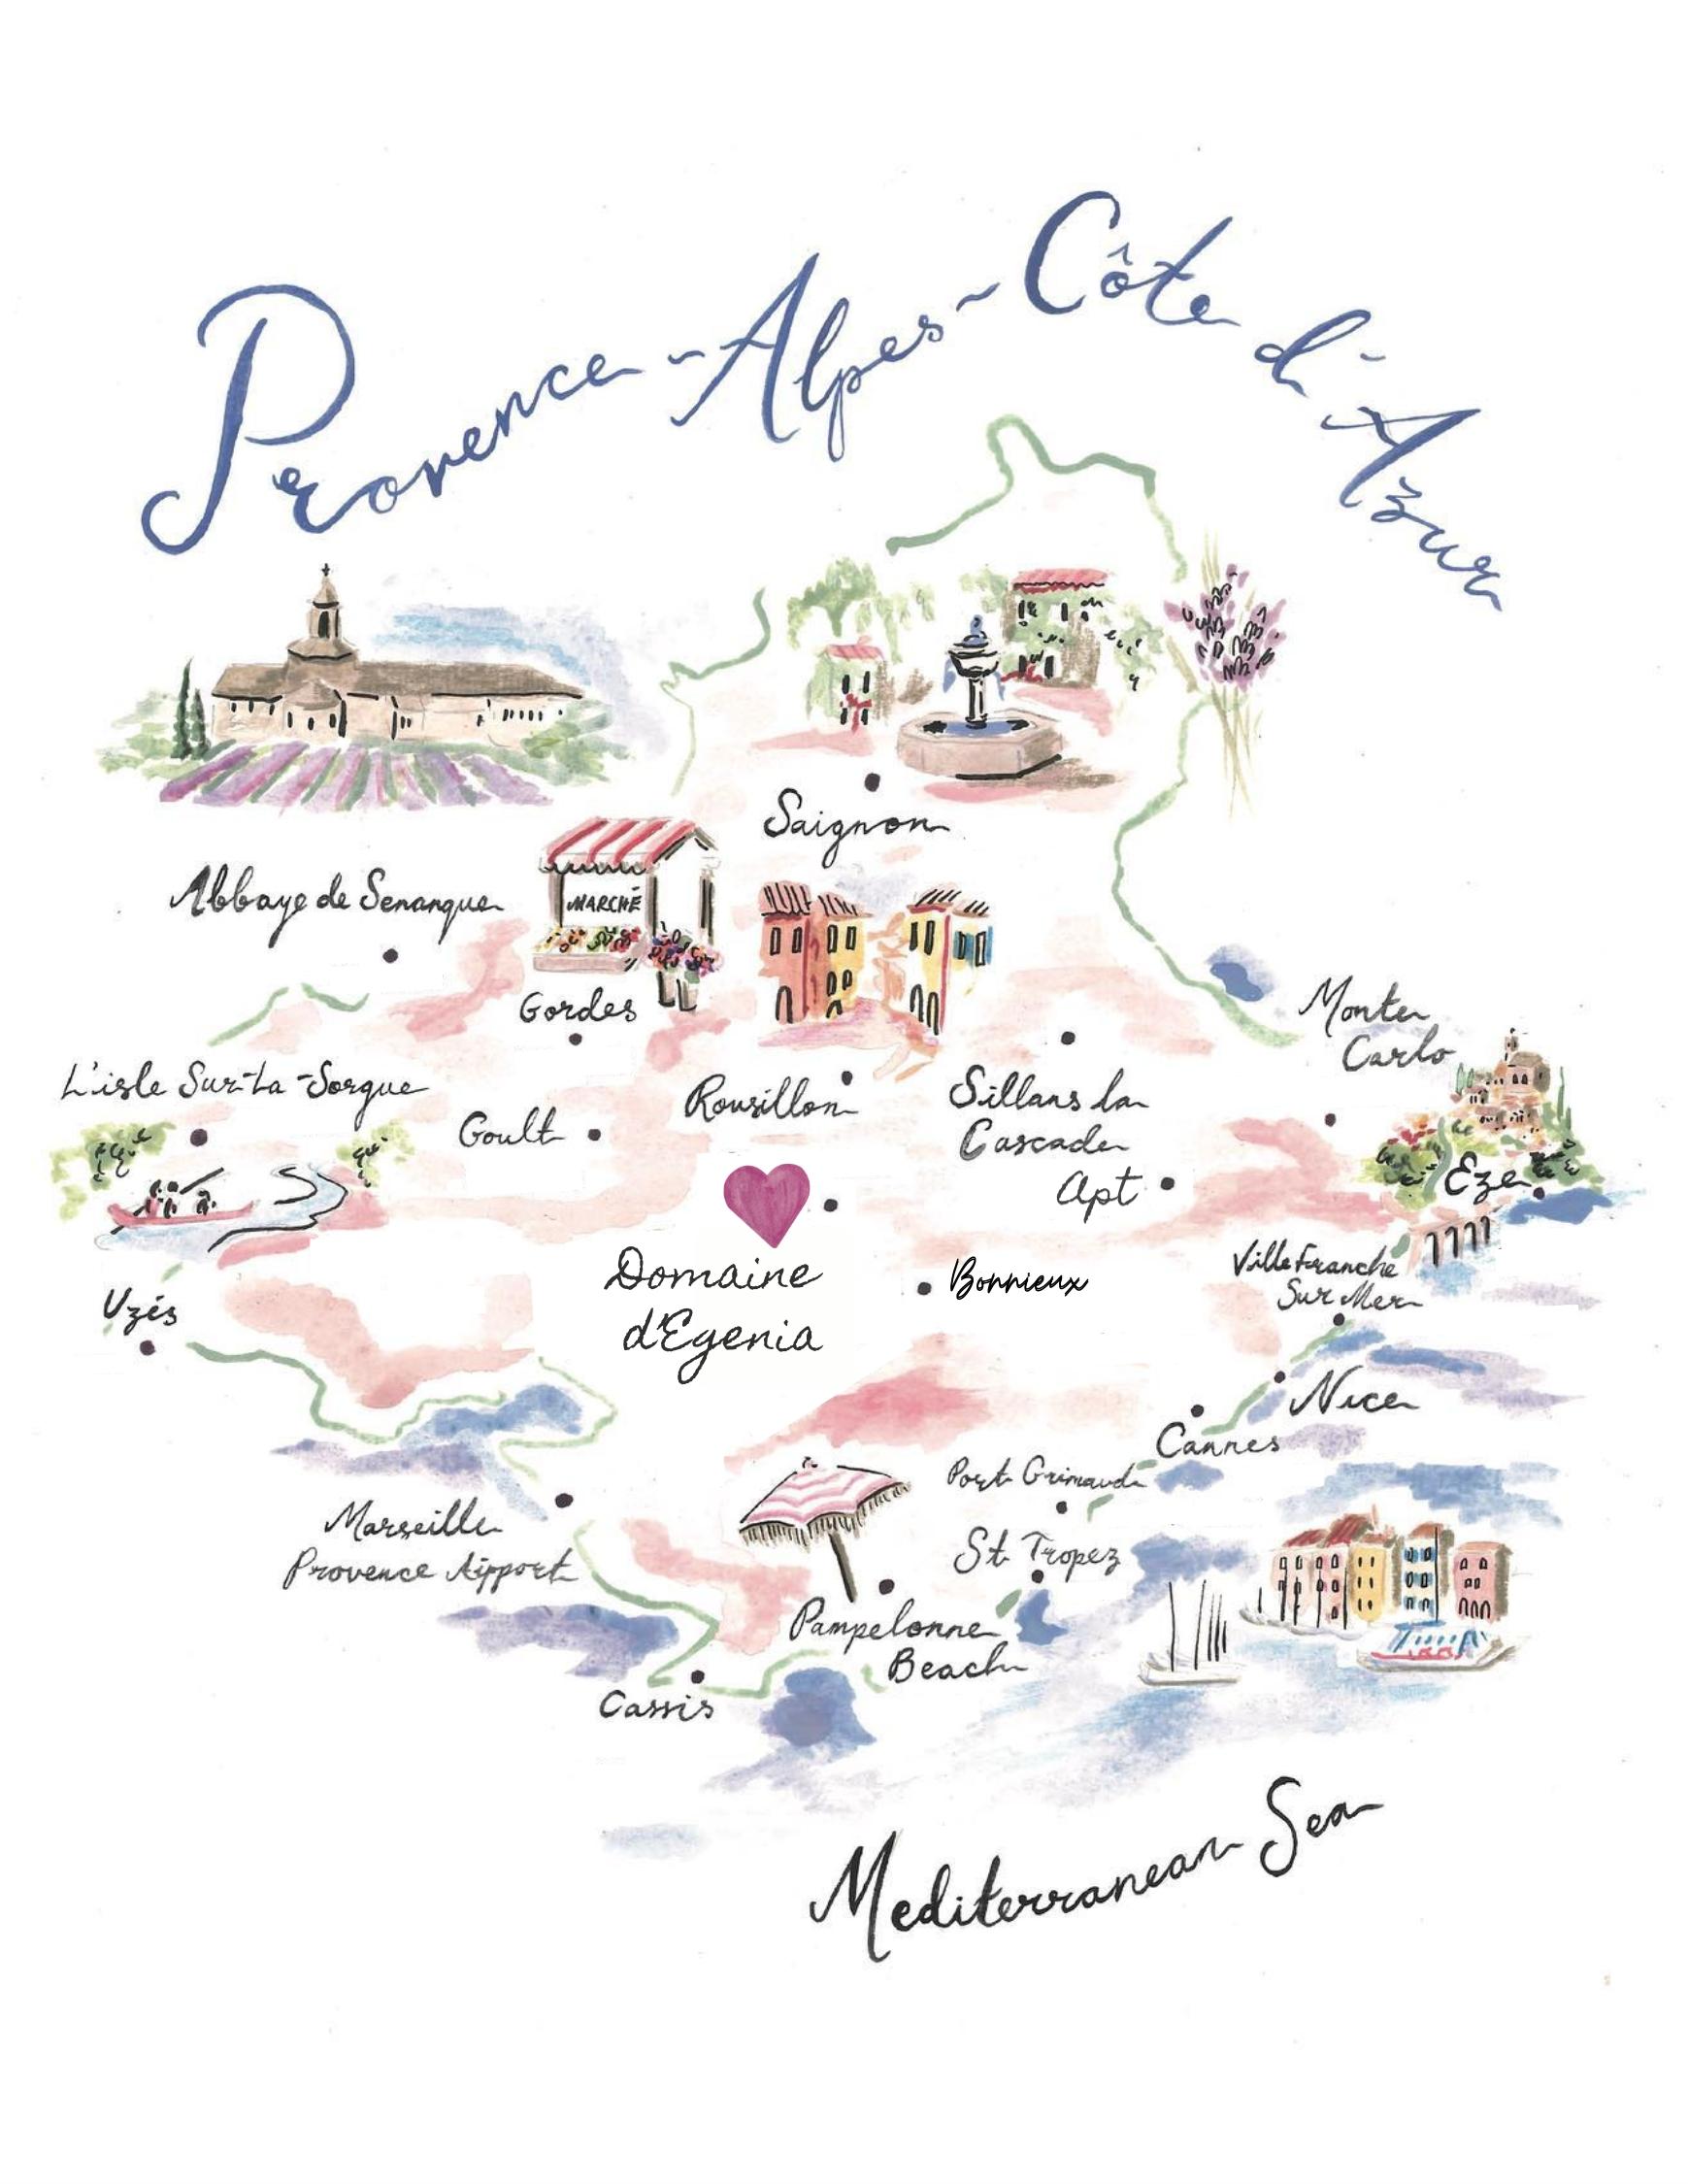 Provence-Alpes-Côte d'Azur
Saignon
Abbaye de Senanque
MARCHÉ
Gordes
Monte
Carlo
L'isle Sur-La-Sorgue
Rousillon
Sillans la
Cascade
Goult
Apt
Eze
Domaine
d'Egenia
Bonnieux
Ville Franche
Sur Mer
Uzés
Nice
Cannes
Port Grimaud
Marseille
Provence Airport
St Tropez
Pampelonne
Beach
Cassis
Mediterranean Sea